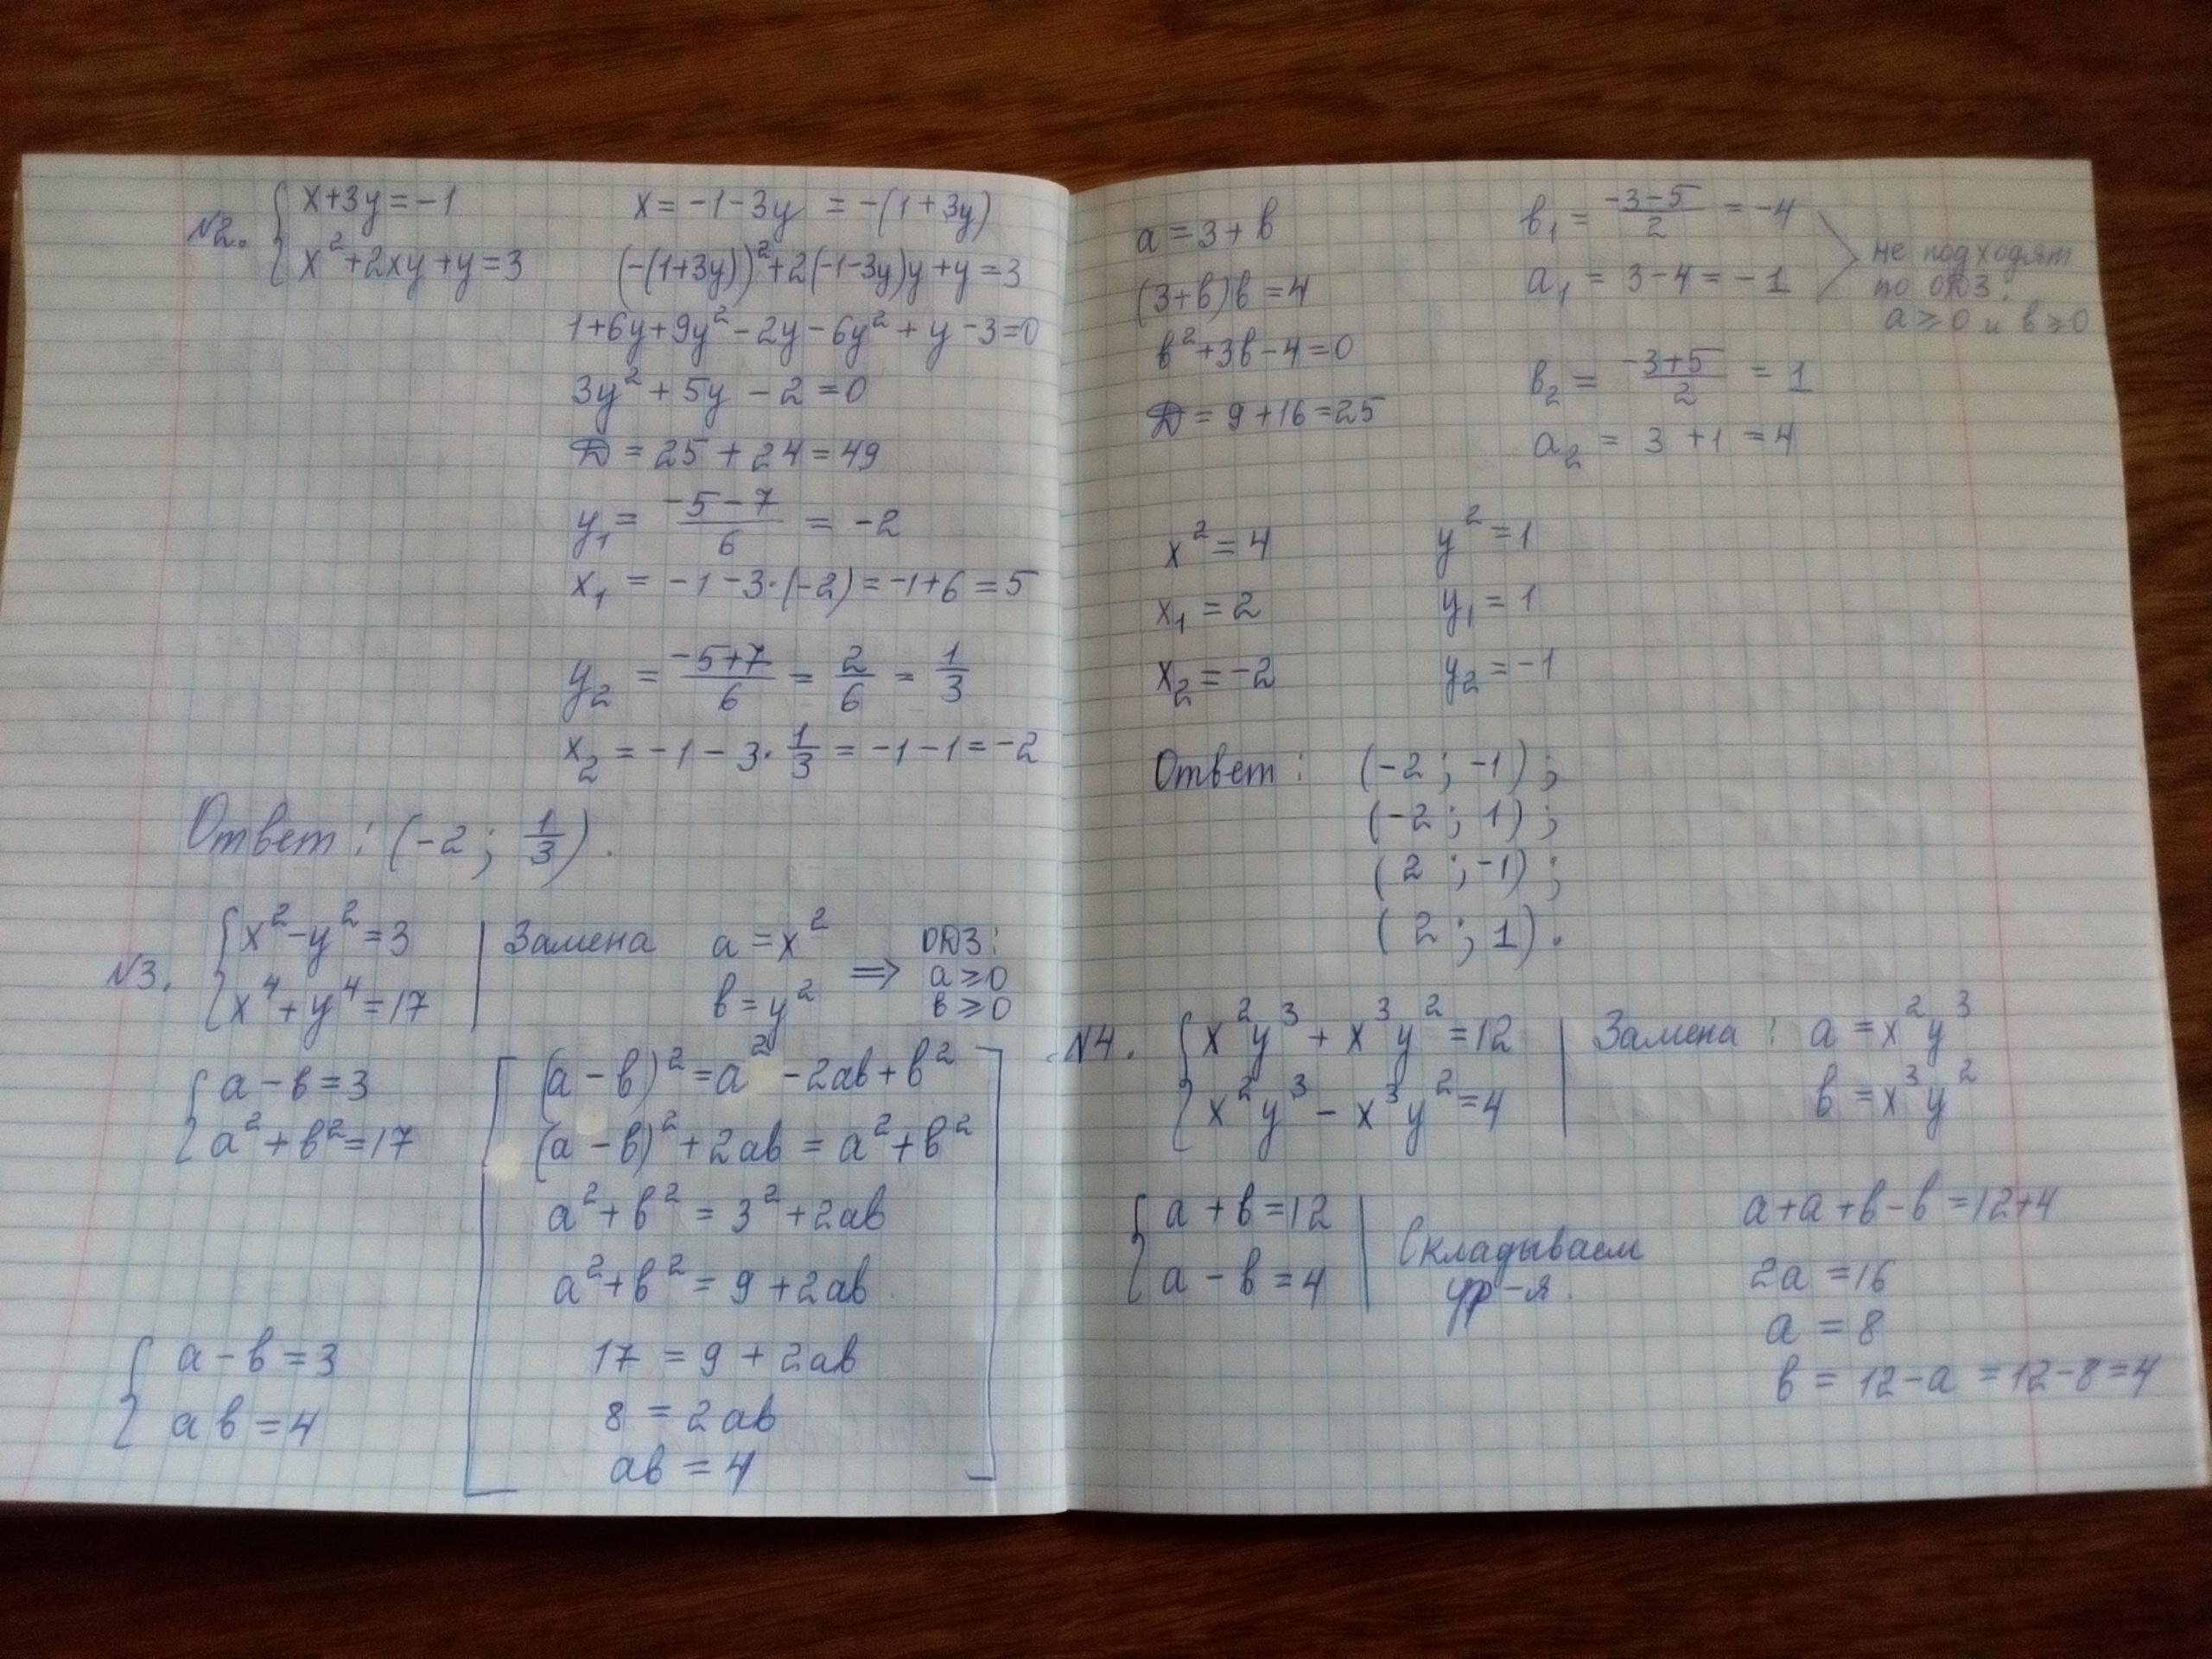 №2. { x+3y=-1
x²+2xy+y=3
x = -1-3y = -(1+3y)
(-(1+3y))²+2(-1-3y)y+y=3
1+6y+9y²-2y-6y²+y-3=0
3y²+5y-2=0
D = 25+24=49
y₁ = (-5-7)/6 = -2
x₁ = -1-3·(-2)=-1+6=5
y₂ = (-5+7)/6 = 2/6 = 1/3
x₂ = -1-3·1/3 = -1-1=-2
Ответ: (-2; 1/3).
№3. { x²-y²=3
x⁴+y⁴=17
Замена a=x²
в=y²
=> ОДЗ:
a≥0
в≥0
{ a-в=3
a²+в²=17
[ (a-в)²=a²-2aв+в²
(a-в)²+2aв=a²+в²
a²+в²=3²+2aв
a²+в²=9+2aв.
17=9+2aв
8=2aв
aв=4 ]
{ a-в=3
aв=4
a=3+в
(3+в)в=4
в²+3в-4=0
D=9+16=25
в₁ = (-3-5)/2 = -4
a₁ = 3-4=-1
не подходят
по ОДЗ.
a≥0 и в≥0
в₂ = (-3+5)/2 = 1
a₂ = 3+1=4
x²=4
x₁=2
x₂=-2
y²=1
y₁=1
y₂=-1
Ответ: (-2; -1);
(-2; 1);
(2; -1);
(2; 1).
№4. { x²y³+x³y²=12
x²y³-x³y²=4
Замена: a=x²y³
в=x³y²
{ a+в=12
a-в=4
Складываем
ур-я.
a+a+в-в=12+4
2a=16
a=8
в=12-a=12-8=4